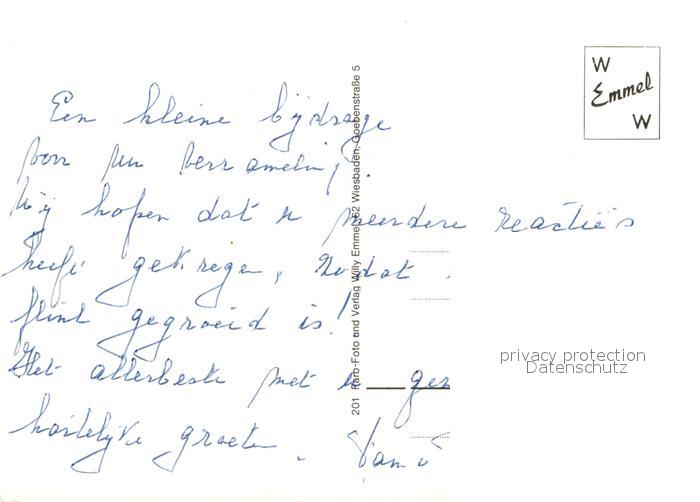 Een kleine bijdrage
voor uw verzameling.
Wij hopen dat u meerdere reactie's
heeft gekregen, zodat
flink gegroeid is!
Het allerbeste met u gez
hartelijke groeten.
201 Raro-Foto und Verlag Willy Emmel, 62 Wiesbaden, Goebenstraße 5
W
Emmel
W
privacy protection
Datenschutz